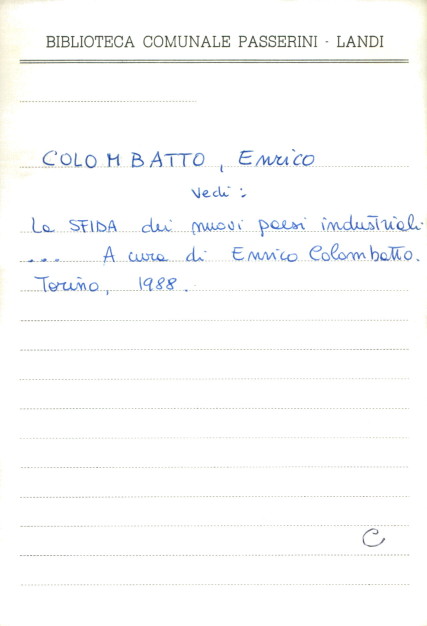 BIBLIOTECA COMUNALE PASSERINI - LANDI
COLOMBATTO, Enrico
vedi:
La SFIDA dei nuovi paesi industriali
... A cura di Enrico Colombatto.
Torino, 1988.
C